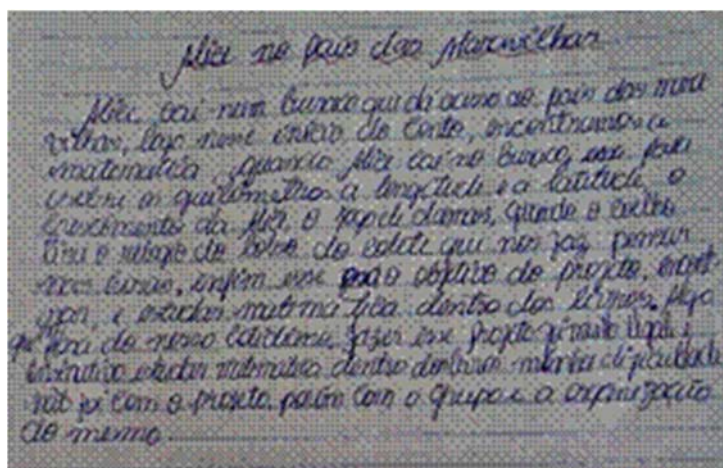 Alice no País das Maravilhas
Alice cai num buraco que dá acesso ao país das mara
vilhas, logo nesse início do conto, encontramos a
matemática, quando Alice cai no buraco, ela fala
sobre os quilômetros a longitude e a latitude, o
crescimento da Alice, o jogo de damas, quando o coelho
tira o relógio do bolso do colete que nos faz pensar
nas horas, enfim esse era o objetivo do projeto, encont
rar, e estudar matemática dentro dos livros. Algo
que fora do nosso cotidiano, fazer esse projeto foi muito legal e
estudar matemática dentro dos livros minha dificuldade
não foi com o projeto, porém com o grupo e a organização
do mesmo.